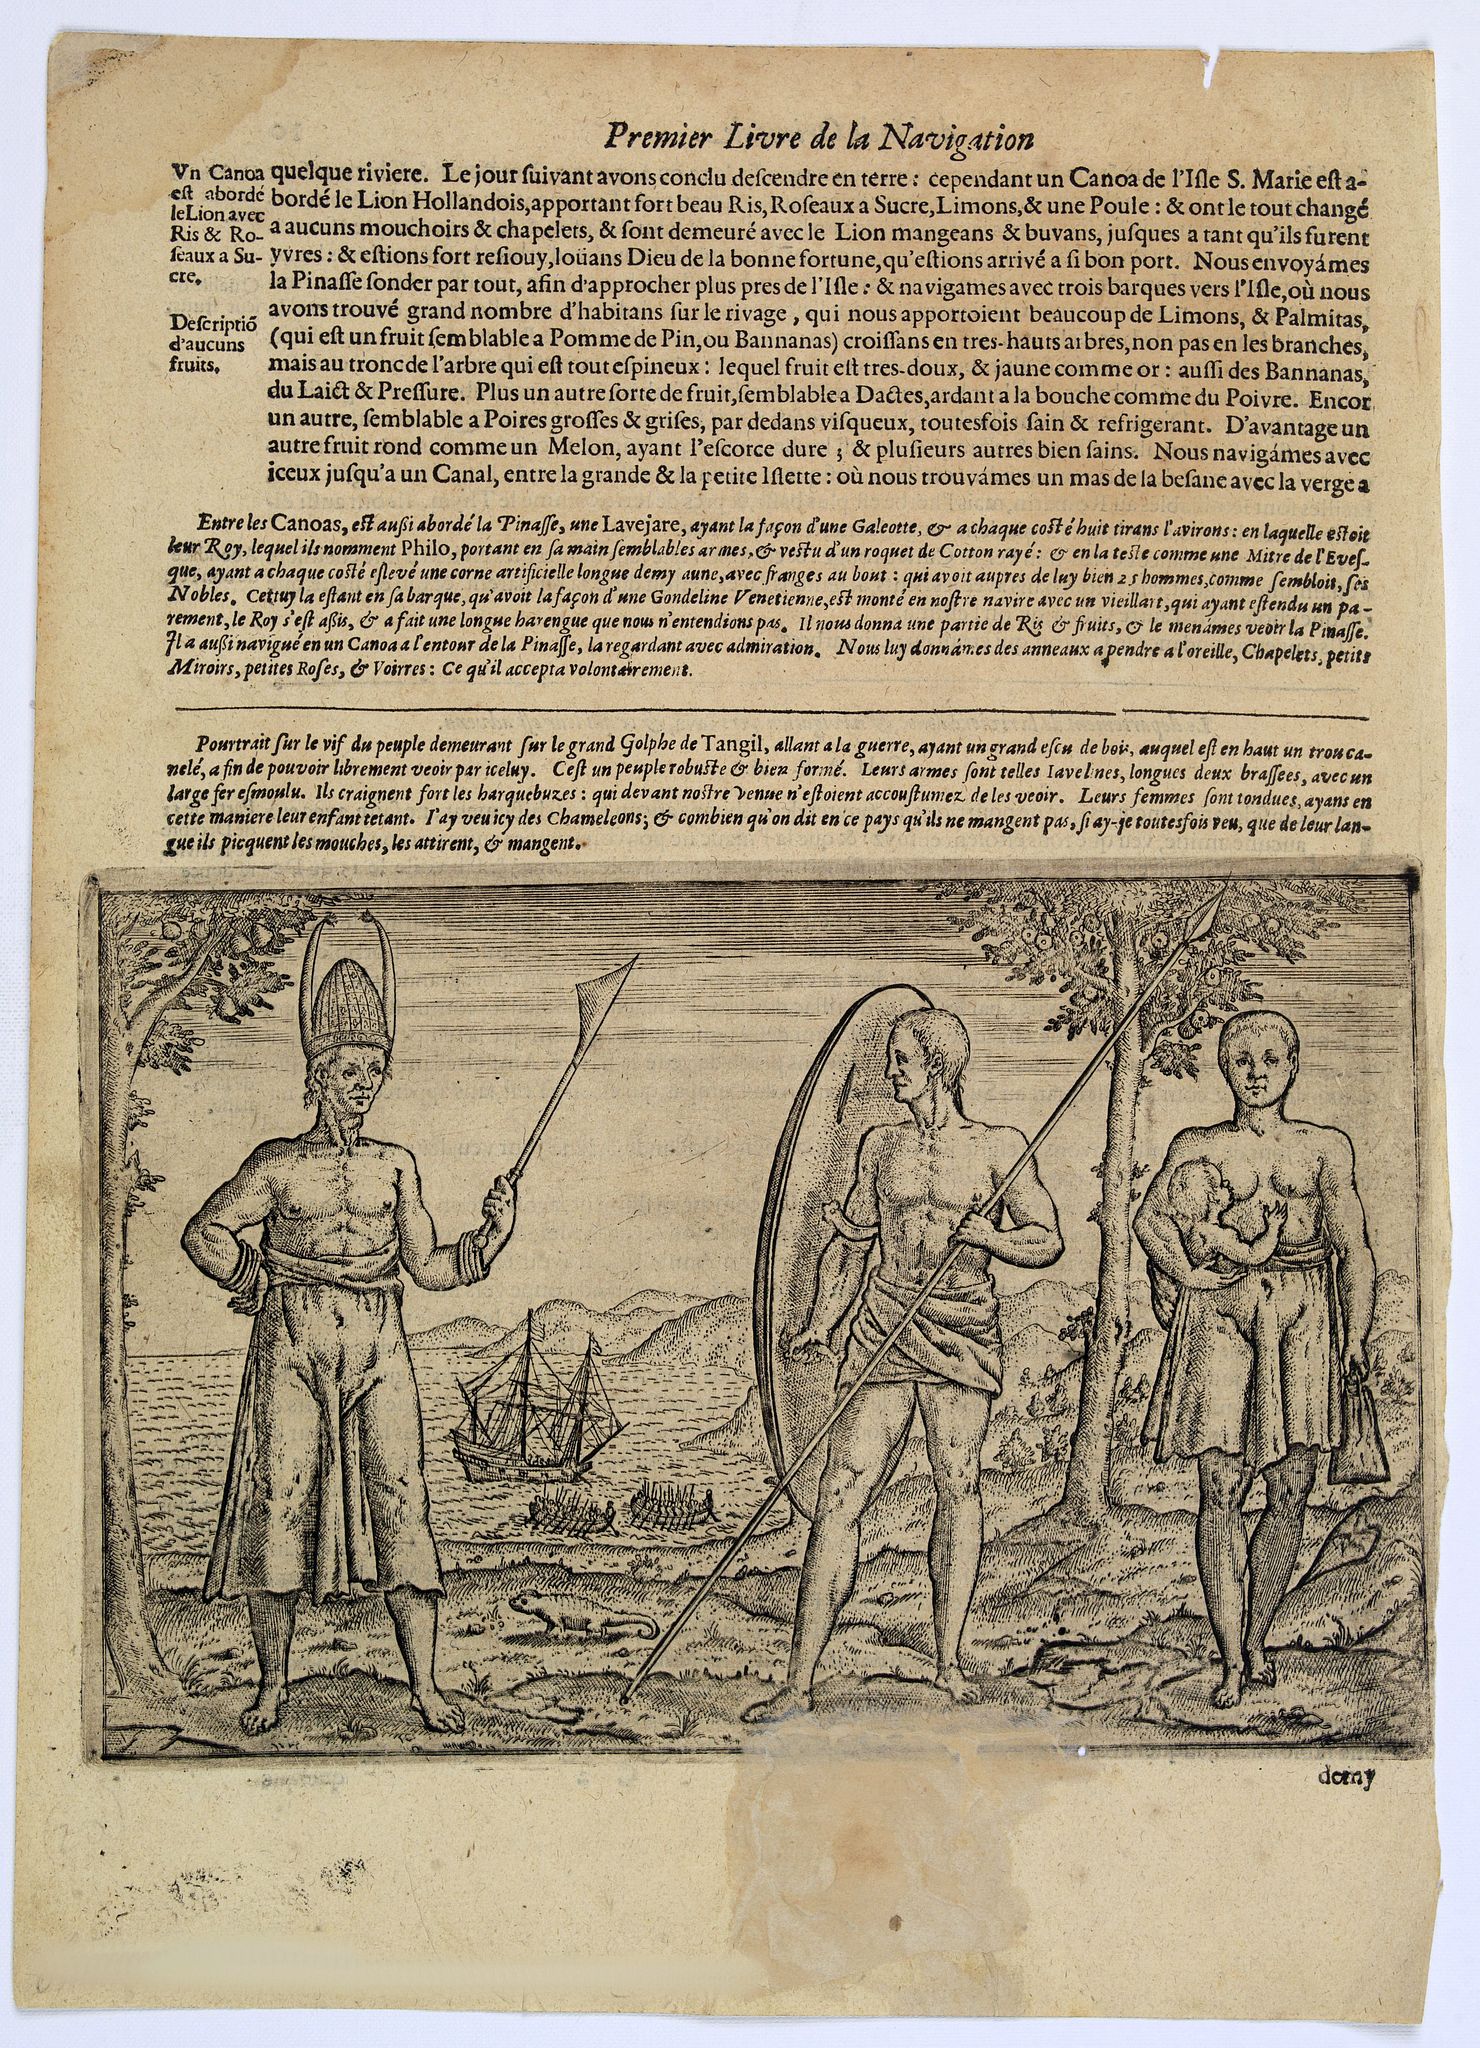 Premier Livre de la Navigation
Vn Canoa
est abordé
le Lion avec
Ris & Ro-
ſeaux a Su-
cre.
Deſcriptiõ
d'aucuns
fruits.
quelque riviere. Le jour ſuivant avons conclu deſcendre en terre: cependant un Canoa de l'Iſle S. Marie eſt a-
bordé le Lion Hollandois, apportant fort beau Ris, Roſeaux a Sucre, Limons, & une Poule: & ont le tout changé
a aucuns mouchoirs & chapelets, & ſont demeuré avec le Lion mangeans & buvans, juſques a tant qu'ils furent
yvres: & eſtions fort reſiouy, loüans Dieu de la bonne fortune, qu'eſtions arrivé a ſi bon port. Nous envoyámes
la Pinaſſe ſonder par tout, afin d'approcher plus pres de l'Iſle: & navigames avec trois barques vers l'Iſle, où nous
avons trouvé grand nombre d'habitans ſur le rivage, qui nous apportoient beaucoup de Limons, & Palmitas,
(qui eſt un fruit ſemblable a Pomme de Pin, ou Bannanas) croiſſans en tres-hauts arbres, non pas en les branches,
mais au tronc de l'arbre qui eſt tout eſpineux: lequel fruit eſt tres-doux, & jaune comme or: auſſi des Bannanas,
du Laict & Preſſure. Plus un autre ſorte de fruit, ſemblable a Dactes, ardant a la bouche comme du Poivre. Encor
un autre, ſemblable a Poires groſſes & griſes, par dedans viſqueux, toutesfois ſain & refrigerant. D'avantage un
autre fruit rond comme un Melon, ayant l'eſcorce dure; & pluſieurs autres bien ſains. Nous navigámes avec
iceux juſqu'a un Canal, entre la grande & la petite Iſlette: où nous trouvámes un mas de la beſane avec la verge a
Entre les Canoas, eſt auſſi abordé la Pinaſſe, une Lavejare, ayant la façon d'une Galeotte, & a chaque coſté huit tirans l'avirons: en laquelle eſtoit
leur Roy, lequel ils nomment Philo, portant en ſa main ſemblables armes, & veſtu d'un roquet de Cotton rayé: & en la teſte comme une Mitre de l'Eveſ-
que, ayant a chaque coſté eſlevé une corne artificielle longue demy aune, avec franges au bout: qui avoit aupres de luy bien 25 hommes, comme ſembloit, ſes
Nobles. Cettuy la eſtant en ſa barque, qu'avoit la façon d'une Gondeline Venetienne, eſt monté en noſtre navire avec un vieillart, qui ayant eſtendu un pa-
rement, le Roy s'eſt aſſis, & a fait une longue harengue que nous n'entendions pas. Il nous donna une partie de Ris & fruits, & le menámes veoir la Pinaſſe.
Il a auſſi navigué en un Canoa a l'entour de la Pinaſſe, la regardant avec admiration. Nous luy donnámes des anneaux a pendre a l'oreille, Chapelets, petits
Miroirs, petites Roſes, & Voirres: Ce qu'il accepta volontairement.
Pourtrait ſur le vif du peuple demeurant ſur le grand Golphe de Tangil, allant a la guerre, ayant un grand eſcu de bois, auquel eſt en haut un trou ca-
nelé, a fin de pouvoir librement veoir par iceluy. C'eſt un peuple robuſte & bien formé. Leurs armes ſont telles Iavelines, longues deux braſſees, avec un
large fer eſmoulu. Ils craignent fort les harquebuzes: qui devant noſtre venue n'eſtoient accouſtumez de les veoir. Leurs femmes ſont tondues, ayans en
cette maniere leur enfant tetant. I'ay veu icy des Chameleons; & combien qu'on dit en ce pays qu'ils ne mangent pas, ſi ay-je toutesfois veu, que de leur lan-
gue ils picquent les mouches, les attirent, & mangent.
demy